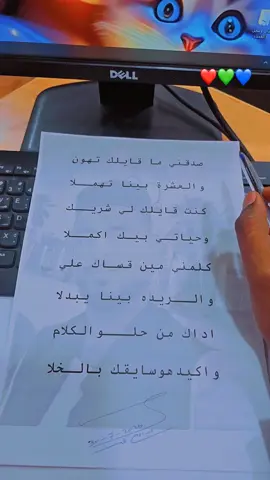 DELL
صدقني ما قايلك تهون
والعشرة بينا تهملا
كنت قايلك لي شريك
وحياتي بيك اكملا
كلمني مين قساك علي
والريده بينا يبدلا
اداك من حلو الكلام
واكيد هو سايقك بالخلا